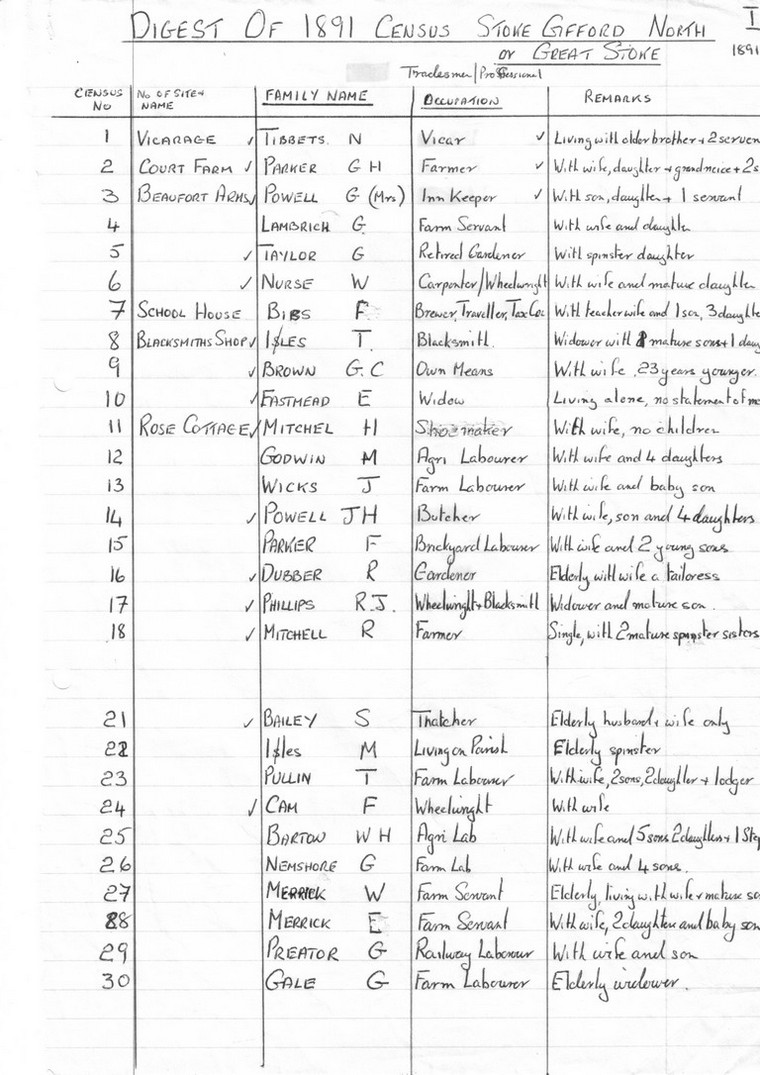 DIGEST OF 1891 CENSUS STOKE GIFFORD NORTH I
or GREAT STOKE 1891
Tradesmen/Professional
CENSUS NO No OF SITE + NAME FAMILY NAME OCCUPATION REMARKS
1 VICARAGE ✓ TIBBETS N Vicar ✓ Living with older brother + 2 serven
2 COURT FARM ✓ PARKER G H Farmer ✓ With wife, daughter + grandneice + 2 s
3 BEAUFORT ARMS ✓ POWELL G (Mrs) Inn Keeper ✓ With son, daughter + 1 servant
4 LAMBRICH G Farm Servant With wife and daughter
5 ✓ TAYLOR G Retired Gardener With spinster daughter
6 ✓ NURSE W Carpenter/Wheelwright With wife and mature daughter
7 SCHOOL HOUSE BIBS F Brewer, Traveller, Tax Col With teacher wife and 1 son, 3 daughte
8 BLACKSMITHS SHOP ✓ ISLES T. Blacksmith. Widower with mature sons + 1 daug
9 ✓ BROWN G.C Own Means With wife 23 years younger.
10 ✓ EASTMEAD E Widow Living alone, no statement of me
11 ROSE COTTAGE ✓ MITCHEL H Shoemaker With wife, no children
12 GODWIN M Agri Labourer With wife and 4 daughters
13 WICKS J Farm Labourer With wife and baby son
14 ✓ POWELL JH Butcher With wife, son and 4 daughters
15 PARKER F Brickyard Labourer With wife and 2 young sons
16 ✓ DUBBER R Gardener Elderly with wife a tailoress
17 ✓ PHILLIPS R.J. Wheelwright + Blacksmith Widower and mature son.
18 ✓ MITCHELL R Farmer Single, with 2 mature spinster sisters
21 ✓ BAILEY S Thatcher Elderly husband + wife only
22 Isles M Living on Parish Elderly spinster
23 PULLIN T Farm Labourer With wife, 2 sons, 2 daughter + lodger
24 ✓ CAM F Wheelwright With wife
25 BARTON W H Agri Lab With wife and 5 sons 2 daughters + 1 Step
26 NEMSHORE G Farm Lab With wife and 4 sons.
27 MERRICK W Farm Servant Elderly, living with wife + mature so
28 MERRICK E Farm Servant With wife, 2 daughters and baby son
29 PREATOR G Railway Labourer With wife and son
30 GALE G Farm Labourer Elderly widower.